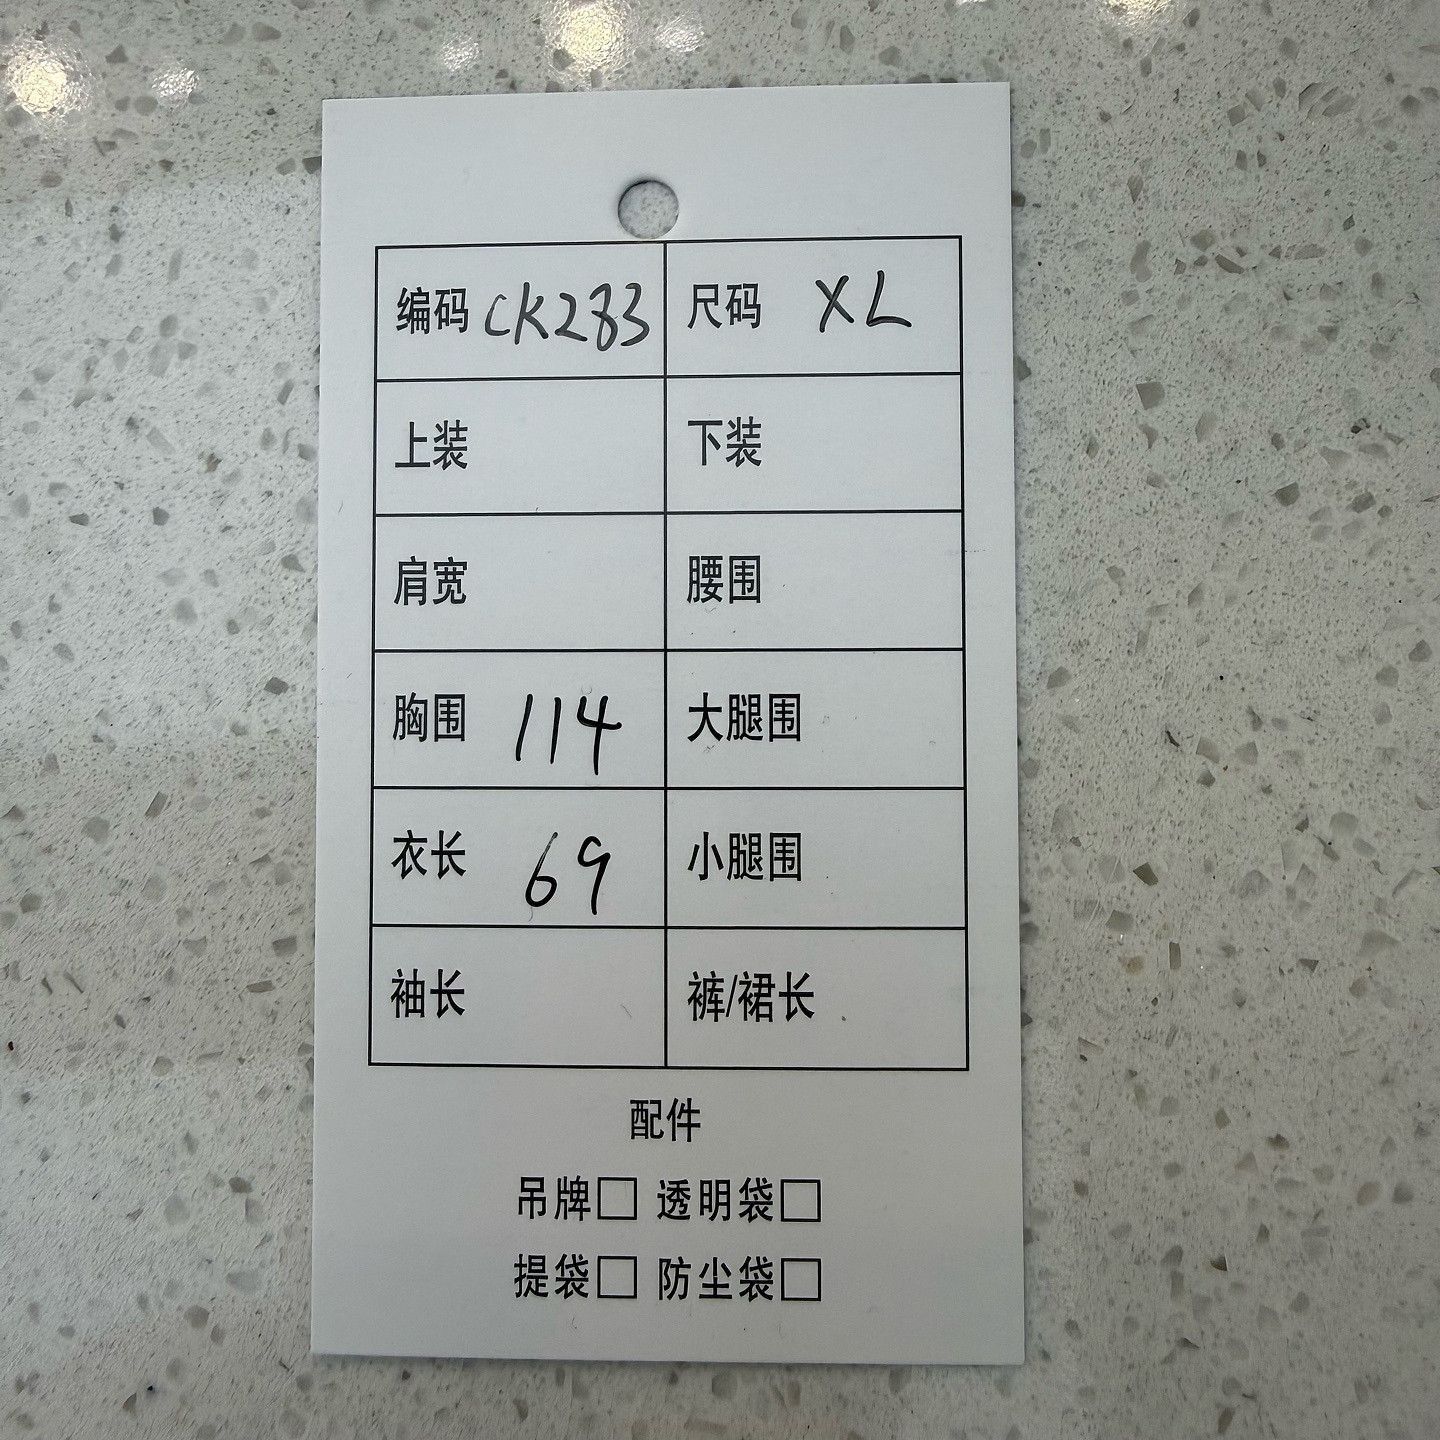 编码 CK283 尺码 XL
上装 下装
肩宽 腰围
胸围 114 大腿围
衣长 69 小腿围
袖长 裤/裙长
配件
吊牌□ 透明袋□
提袋□ 防尘袋□